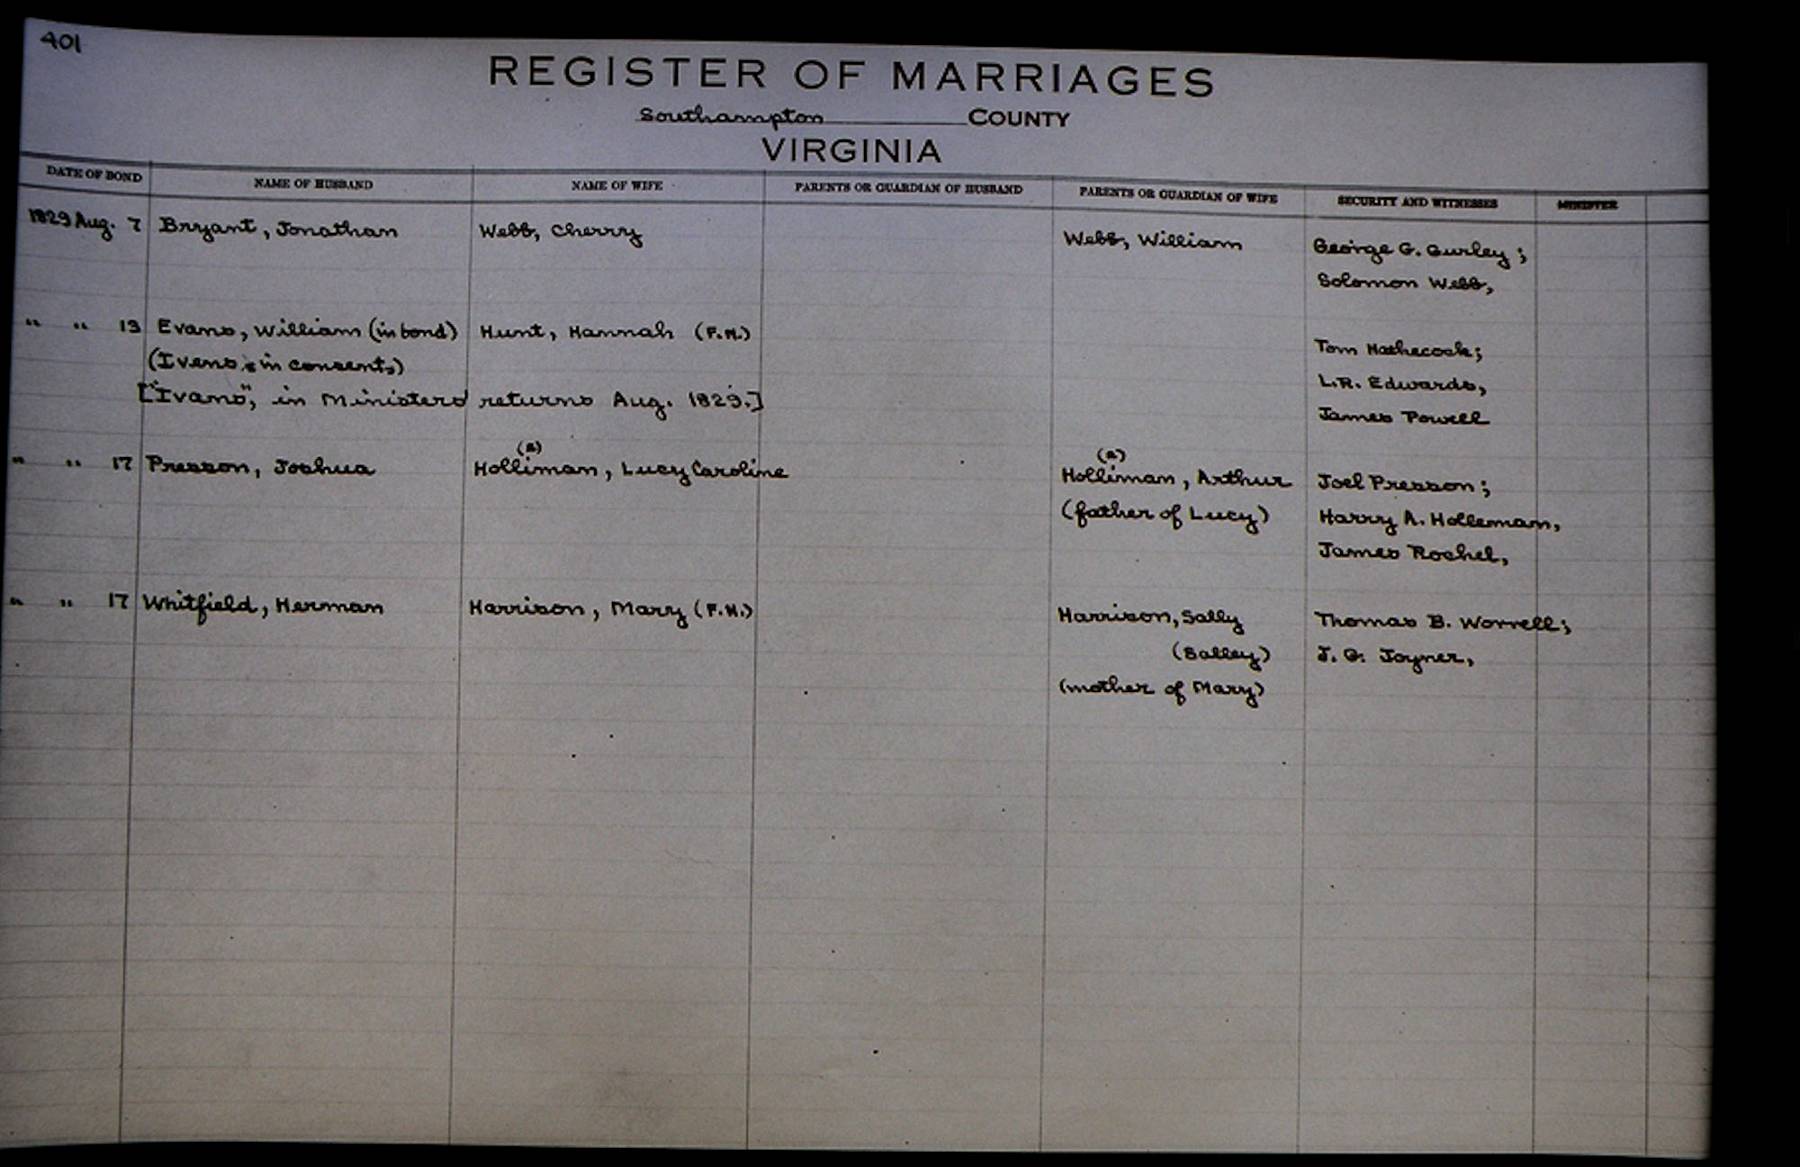 401
REGISTER OF MARRIAGES
Southampton COUNTY
VIRGINIA
DATE OF BOND NAME OF HUSBAND NAME OF WIFE PARENTS OR GUARDIAN OF HUSBAND PARENTS OR GUARDIAN OF WIFE SECURITY AND WITNESSES MINISTER
1829 Aug. 7 Bryant, Jonathan Webb, Cherry Webb, William George G. Gurley;
Solomon Webb,
" " 13 Evans, William (in bond) Hunt, Hannah (F.N.) Tom Hathecock;
(Ivens, in consent,) L.R. Edwards,
["Ivans", in Ministers returns Aug. 1829.] James Powell
(e) (e)
" " 17 Presson, Joshua Holliman, Lucy Caroline Holliman, Arthur Joel Presson;
(father of Lucy) Harry A. Holleman,
James Rochel,
" " 17 Whitfield, Herman Harrison, Mary (F.N.) Harrison, Sally Thomas B. Worrell;
(Salley) J. G. Joyner,
(mother of Mary)